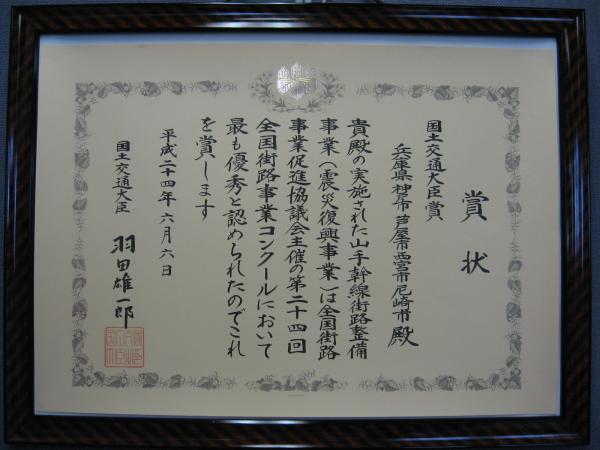 賞状
国土交通大臣賞
兵庫県 神戸市 芦屋市 西宮市 尼崎市 殿
貴殿の実施された山手幹線街路整備
事業(震災復興事業)は全国街路
事業促進協議会主催の第二十四回
全国街路事業コンクールにおいて
最も優秀と認められたのでこれ
を賞します
平成二十四年六月六日
国土交通大臣 羽田雄一郎